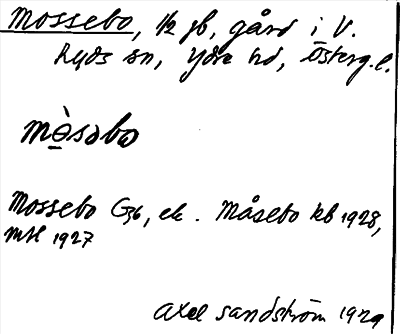 Mossebo, 1/2 gb, gård i V.
Ryds sn, Ydre hd, Österg. l.
mò̲səbo
Mossebo G36, ek. Måsebo kb 1928,
mtl 1927
Axel Sandström 1929